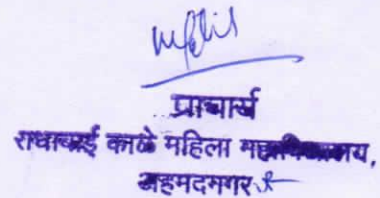 प्राचार्य
राधाबाई काळे महिला महाविद्यालय,
अहमदनगर